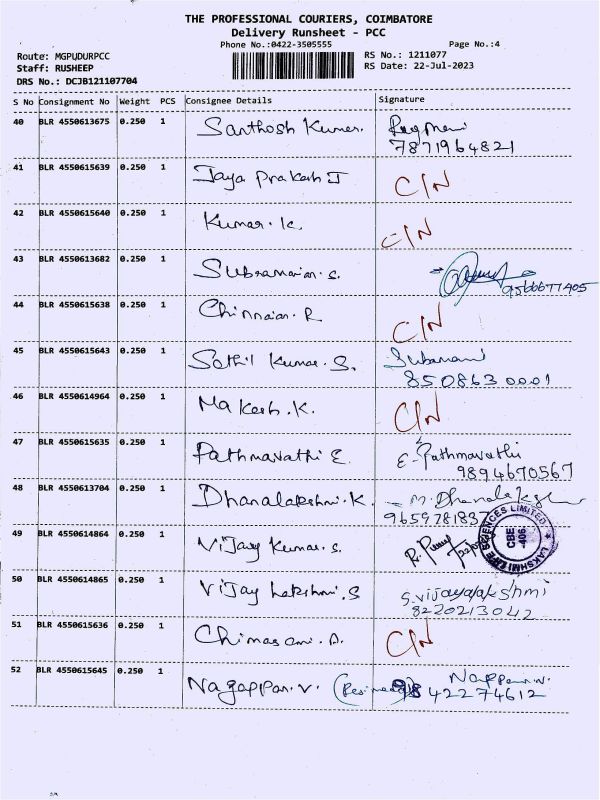 THE PROFESSIONAL COURIERS, COIMBATORE
Delivery Runsheet - PCC
Phone No.:0422-3505555 Page No.:4
Route: MGPUDURPCC RS No.: 1211077
Staff: RUSHEEP RS Date: 22-Jul-2023
DRS No.: DCJB121107704
S No Consignment No Weight PCS Consignee Details Signature
40 BLR 4550613675 0.250 1 Santhosh Kumar.
7871964821
41 BLR 4550615639 0.250 1 Jaya Prakash J C/N
42 BLR 4550615640 0.250 1 Kumar. K. C/N
43 BLR 4550613682 0.250 1 Subramanian. S.
9566677405
44 BLR 4550615638 0.250 1 Chinnaian. R C/N
45 BLR 4550615643 0.250 1 Sathil Kumar. S.
8508630001
46 BLR 4550614964 0.250 1 Makesh. K. C/N
47 BLR 4550615635 0.250 1 Pathmavathi E. E. Pathmavathi
9894670567
48 BLR 4550613704 0.250 1 Dhanalakshmi. K. M. Dhanalakshmi
9659781837
49 BLR 4550614864 0.250 1 Vijay Kumar. S.
LAKSHMI LIFE SCIENCES LIMITED
CBE
-406.
50 BLR 4550614865 0.250 1 Vijay Lakshmi. S S. Vijayalakshmi
8220213042
51 BLR 4550615636 0.250 1 Chinasami. A. C/N
52 BLR 4550615645 0.250 1 Nagappan. V.
9842274612